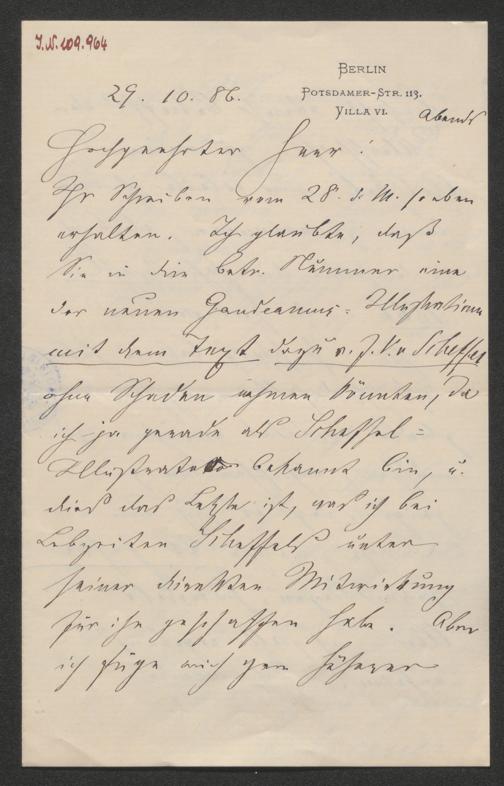 J.N. 109.964
BERLIN
POTSDAMER-STR. 113.
VILLA VI.
29. 10. 86.
Abends
Hochgeehrter Herr!
Ihr Schreiben vom 28. d. M. soeben
erhalten. Ich glaubte, daß
Sie in die betr. Nummer eine
der neuen Gaudeamus-Illustrationen
mit dem Text dazu v. J. V. v Scheffel
ohne Schaden nehmen könnten, da
ich ja gerade als Scheffel-
Illustrator bekannt bin, u.
dies das Letzte ist, was ich bei
Lebzeiten Scheffels unter
seiner direkten Mitwirkung
für ihn geschaffen habe. Aber
ich füge mich gern höherer